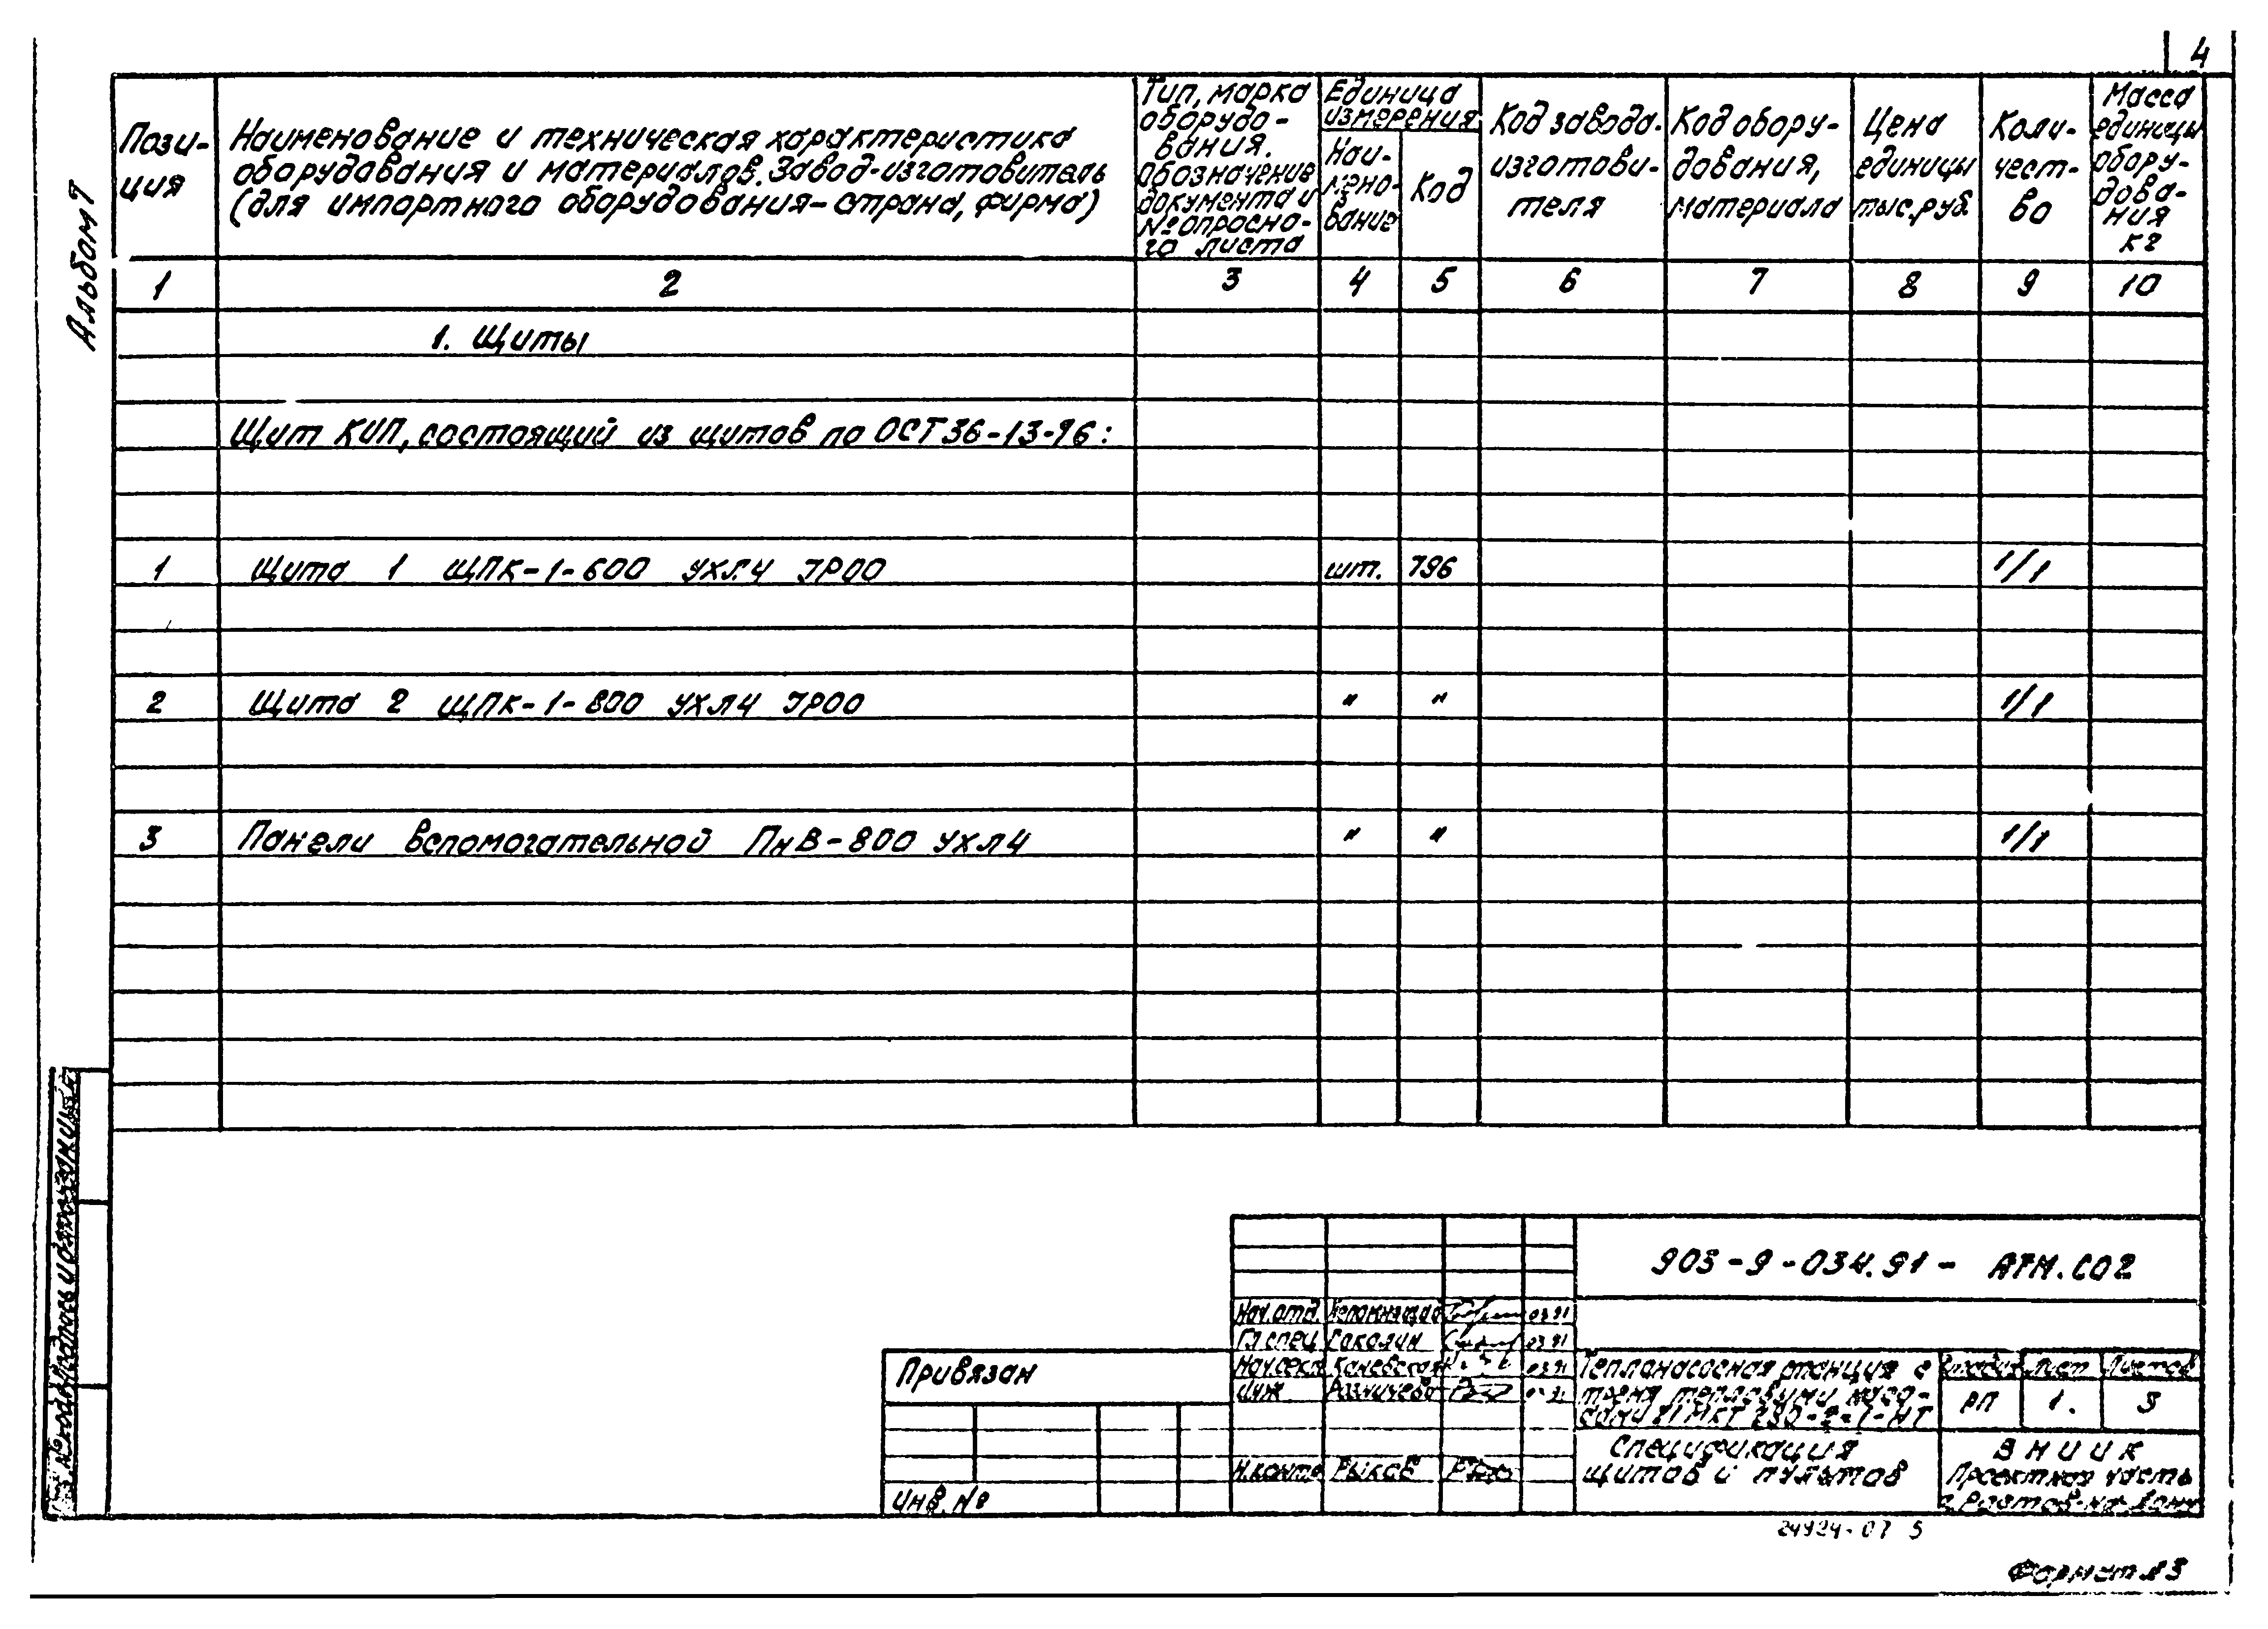 4
Альбом 7
Пози-
ция
Наименование и техническая характеристика
оборудования и материалов. Завод-изготовитель
(для импортного оборудования-страна, фирма)
Тип, марка
оборудо-
вания.
Обозначение
документа и
№ опросно-
го листа
Единица
измерения
Наи-
мено-
вание
Код
Код завода-
изготови-
теля
Код обору-
дования,
материала
Цена
единицы
тыс.руб.
Коли-
чест-
во
Масса
единицы
обору-
дова-
ния
кг
1 2 3 4 5 6 7 8 9 10
1. Щиты
Щит КИП, состоящий из щитов по ОСТ 36-13-76:
1 Щита 1 ЩПК-1-600 УХЛ4 IP00 шт. 796 1/1
2 Щита 2 ЩПК-1-800 УХЛ4 IP00 " " 1/1
3 Панели вспомогательной ПнВ-800 УХЛ4 " " 1/1
903-9-034.91- АТМ.СО2
Нач.отд. 03.91
Гл.спец Соколин 03.91
Нач.сект. Каневская 03.91
Инж
Н.контр Рыков
Привязан
Инв.№
Теплонасосная станция с
тремя тепловыми насо-
сами
Стадия Лист Листов
РП 1. 3
Спецификация
щитов и пультов
ВНИИК
Проектная часть
г.Ростов-на-Дону
24924-07 5
Формат А3